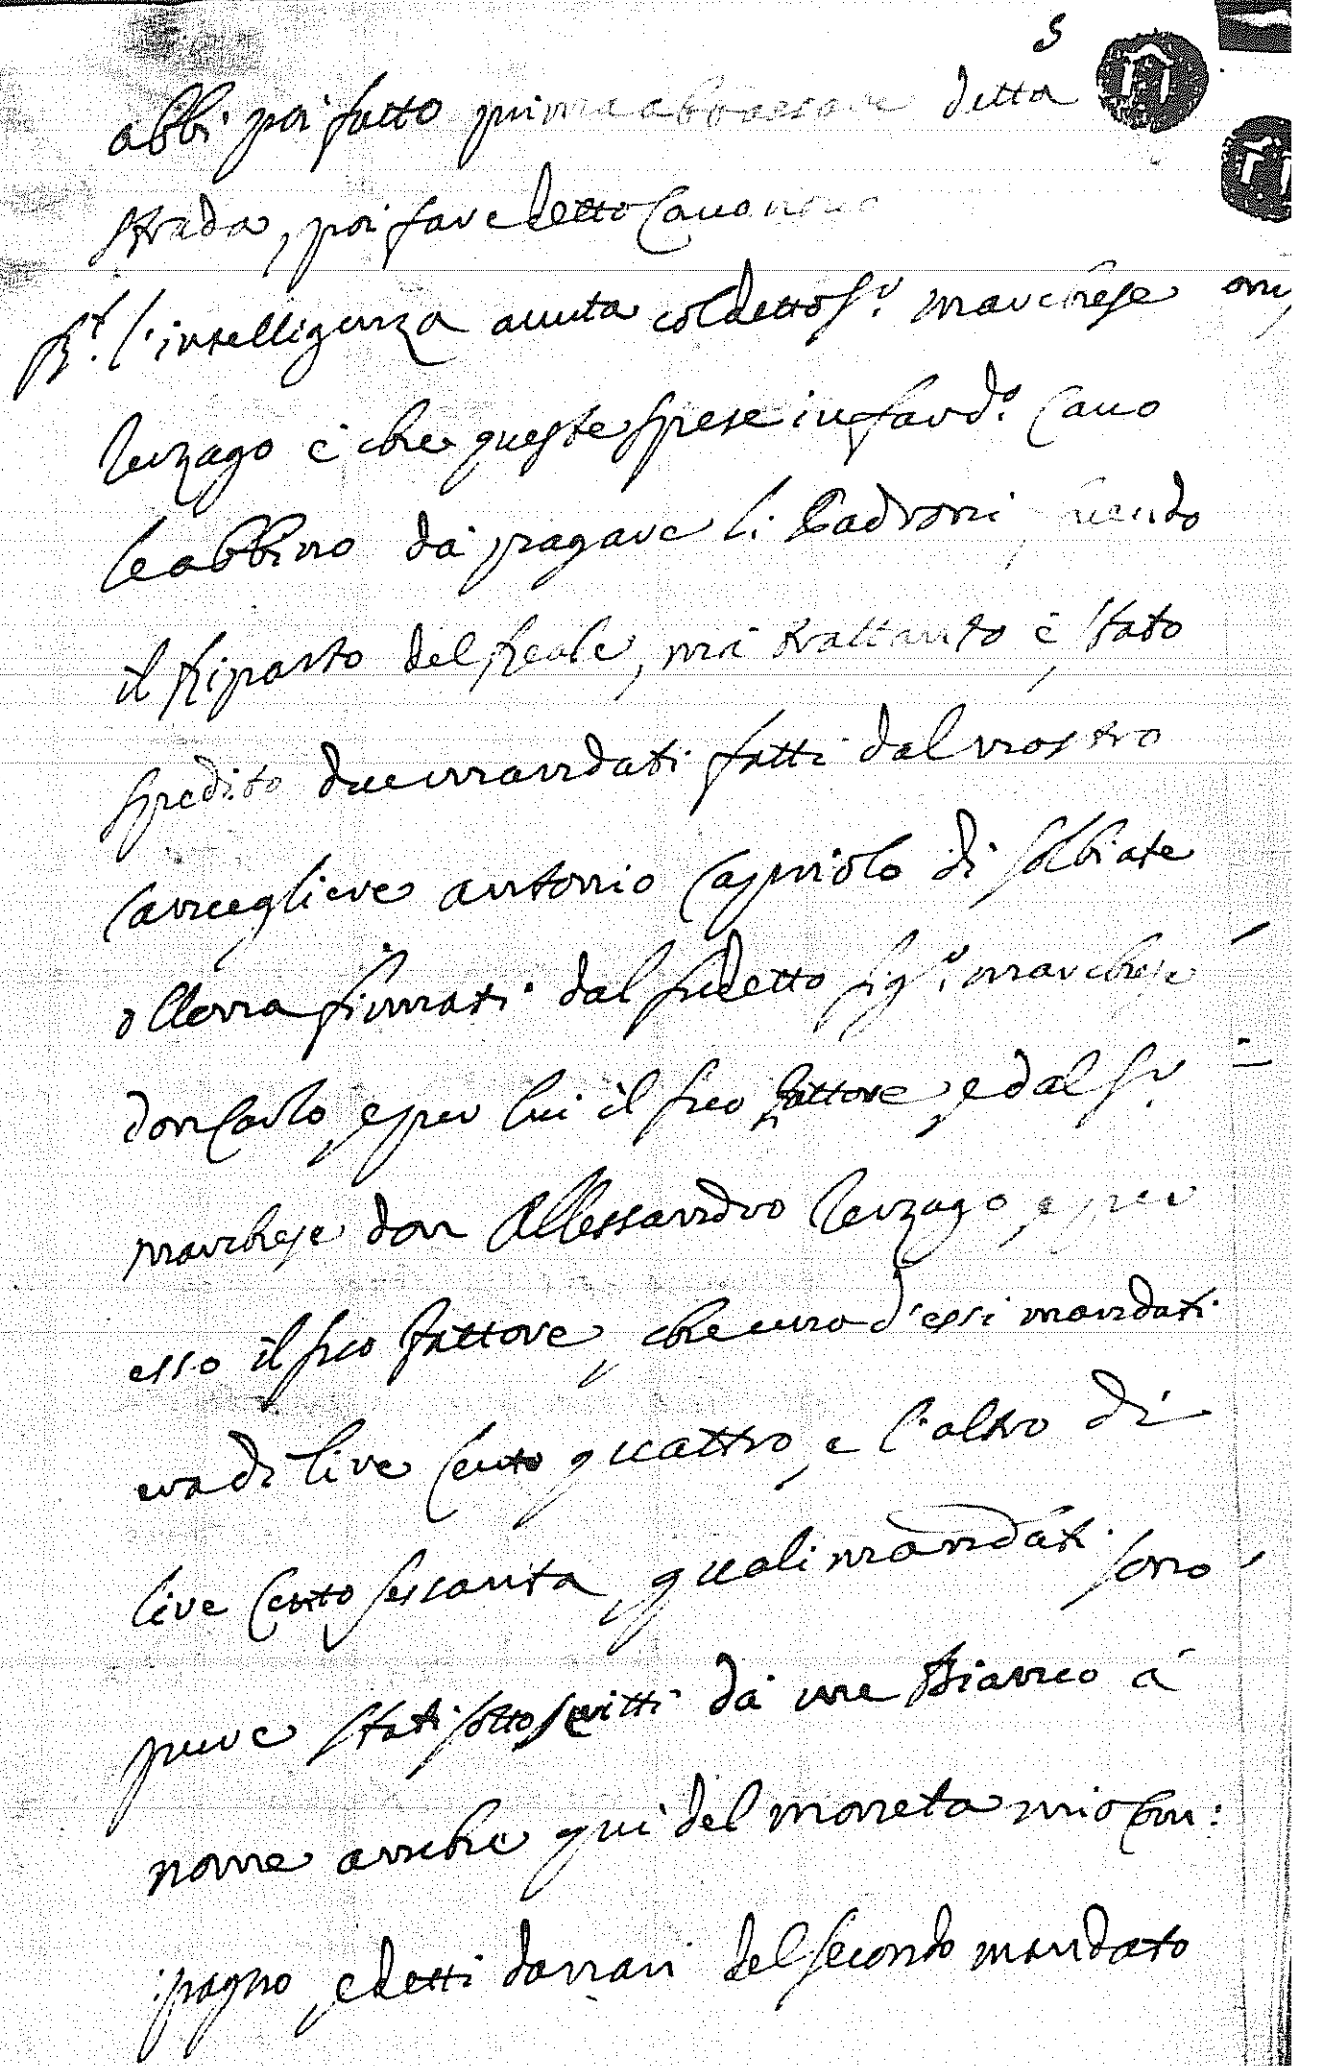 5
abbi poi fatto prima abbassare detta
strada, poi fare detto Cavo
l'intelligenza auuta col detto Sr. Marchese
Terzago è che queste spese in far do. Cavo
le abbino da pagare li Padroni,
il Riparto del Reale, ma trattanto è stato
spedito due mandati fatti dal nostro
Cancegliere Antonio Capriolo di Solbiate
Ollona firmati dal sudetto Sigr. Marchese
don Carlo, e per lui il suo fattore, e dal Sr.
Marchese don Allessandro Terzago, e per
esso il suo fattore, che uno d'essi mandati
era di lire Cento quattro, e l'altro di
lire Cento sessanta, quali mandati sono
pure stati sotto scritti da me Bianco à
nome anche qui del Moneta mio Com:
:pagno, e detti danari del secondo mandato